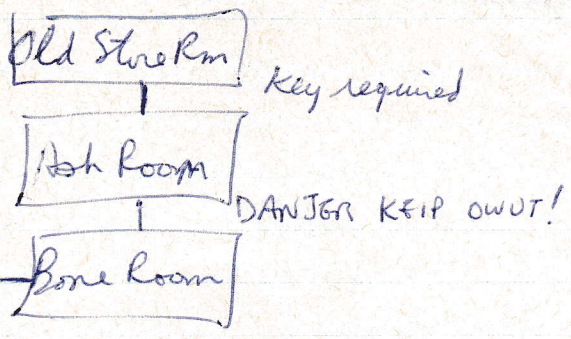 Old Store Rm
Key required
Ash Room
DANJER KEIP OWUT!
Bone Room